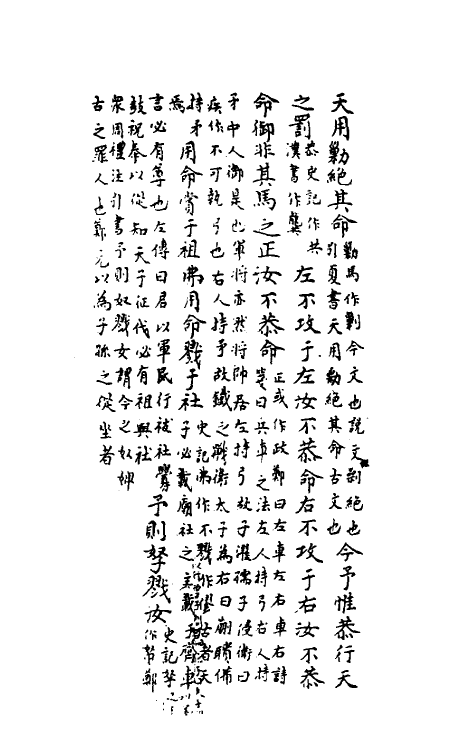 天用勦絕其命勦馬作剿今文也說文剿絕也引夏書天用勦絕其命古文也今予惟恭行天
之罰恭史記作共漢書作龔左不攻于左汝不恭命右不攻于右汝不恭
命御非其馬之正汝不恭命正或作政鄭曰左車左右車右詩箋曰兵車之法左人持弓右人持
矛中人御是也軍將亦然將帥居左持弓故子濯孺子侵衛曰
疾作不可執弓也右人持矛故鐵之戰衛太子為右曰蒯聵備
持矛焉用命賞于祖弗用命戮于社史記弗作不戮作僇古者天子必載廟社之主載于齊車
言必有尊也左傳曰君以軍民行祓社釁
鼓祝奉以從知天子征伐必有祖與社予則孥戮汝史記孥作帑鄭
眾周禮注引書予則奴戮女謂今之奴婢
古之罪人也鄭元以為子孫之從坐者